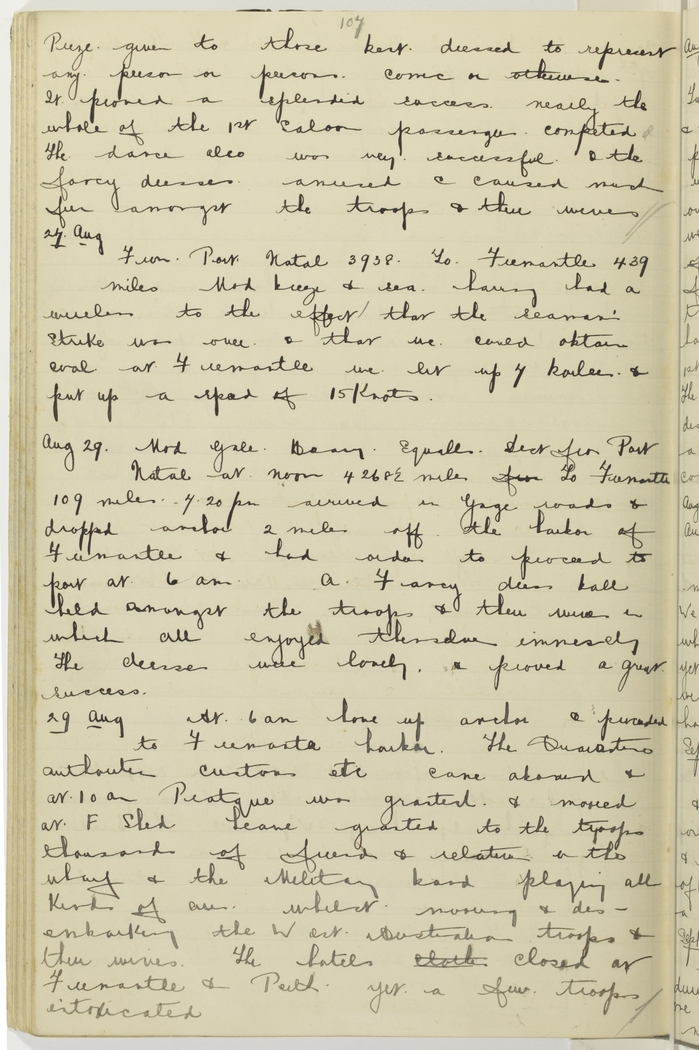 107
Prize given to those best dressed to represent
any person or persons. comic or otherwise.
It proved a splendid success nearly the
whole of the 1st Saloon passengers competed
The dance also was very successful. & the
fancy dresses amused & caused much
fun amongst the troops & their wives
27 Aug
From Port Natal 3938. To Fremantle 439
miles Mod breeze & sea. having had a
wireless to the effect that the seamans
strike was over & that we could obtain
coal at Fremantle we lit up 7 boilers &
put up a speed of 15 Knots.
Aug 29. Mod Gale. Heavy Squalls. Dist from Port
Natal at noon 4268 miles from To Fremantle
109 miles. 7.20 pm arrived in Gage roads &
dropped anchor 2 miles off the harbor of
Fremantle & had orders to proceed to
port at 6 am. A Fancy dress ball
held amongst the troops & their wives in
which all enjoyed themselves immensely
The dresses were lovely. & proved a great
success.
29 Aug At 6 am hove up anchor & proceeded
to Fremantle harbor. The Quarantine
authorities customs etc came aboard &
at 10 am Pratique was granted. & moored
at F Shed Leave granted to the troops
thousands of friends & relatives on the
wharf & the Military band playing all
Kinds of airs whilst mooring & dis-
embarking the West Australian troops &
their wives. The hotels closed at
Fremantle & Perth. yet a few troops
intoxicated